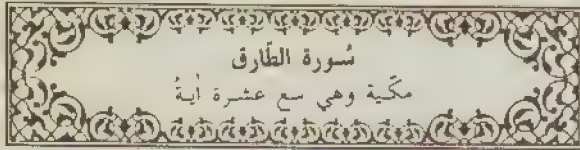 سُورة الطَّارق
مكّية وهي سع عشرة أيةً